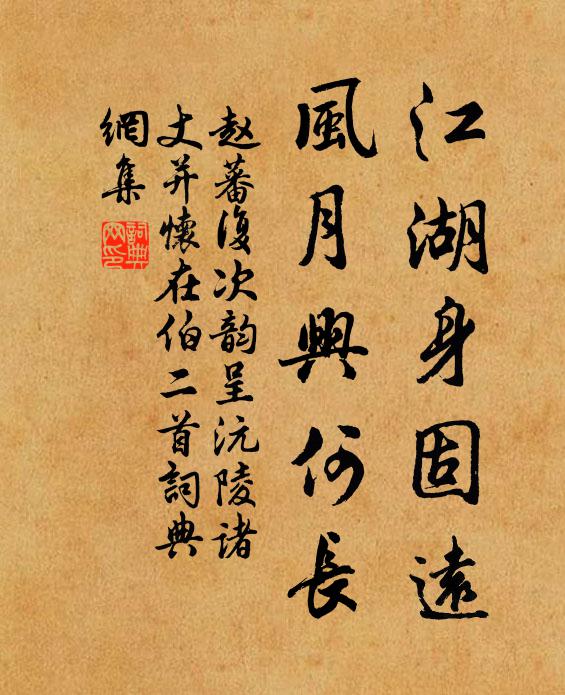 江湖身固遠
風月興何長
赵蕃復次韵呈沅陵诸
丈并懷在伯二首詞典
網集
詞典網印